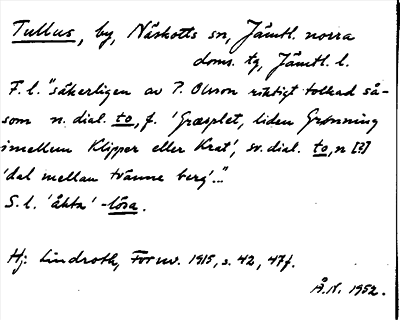 Tullus, by, Näskotts sn, Jämtl. norra
doms. tg, Jämtl. l.
F. l. "säkerligen av P. Olsson riktigt tolkad så-
som n. dial. to, f. 'Græsplet, liden Grønning
imellem Klipper eller Krat', sv. dial. to, n [?]
'dal mellan tvänne berg'..."
S. l. 'åkta' -lösa.
Hj. Lindroth, Fornv. 1915, s. 42, 47f.
Å.N. 1952.